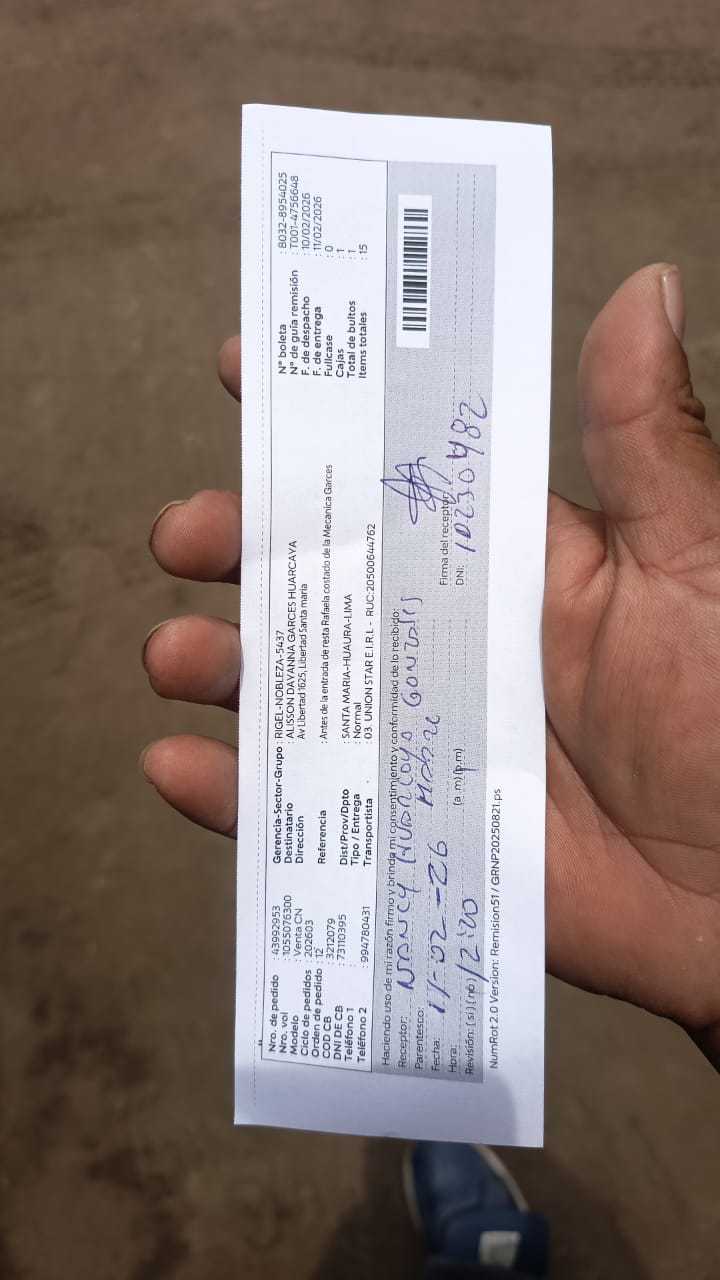 Nro. de pedido : 43992953
Nro. vol : 1055076300
Modelo : Venta CN
Ciclo de pedidos : 202603
Orden de pedido : 12
COD CB : 3212079
DNI DE CB : 73110395
Teléfono 1
Teléfono 2 : 994780431
Gerencia-Sector-Grupo : RIGEL-NOBLEZA-5437
Destinatario : ALISSON DAYANNA GARCES HUARCAYA
Dirección : Av Libertad 1625, Libertad Santa maria
Referencia : Antes de la entrada de resta Rafaela costado de la Mecanica Garces
Dist/Prov/Dpto : SANTA MARIA-HUAURA-LIMA
Tipo / Entrega : Normal
Transportista : 03. UNION STAR E.I.R.L - RUC:20500644762
N° boleta : 8032-8954025
N° de guía remisión : T001-4756648
F. de despacho : 10/02/2026
F. de entrega : 11/02/2026
Fullcase : 0
Cajas : 1
Total de bultos : 1
Items totales : 15
Haciendo uso de mi razón firmo y brinda mi consentimiento y conformidad de lo recibido:
Receptor: NANCY HUARCAYA GONZALES
Parentesco:
Fecha: 11-02-26
Hora: (a.m) (p.m)
Revisión: (si) (no) 12:00
Firma del receptor:
DNI: 10230482
NumRot 2.0 Version: Remision51 / GRNP20250821.ps